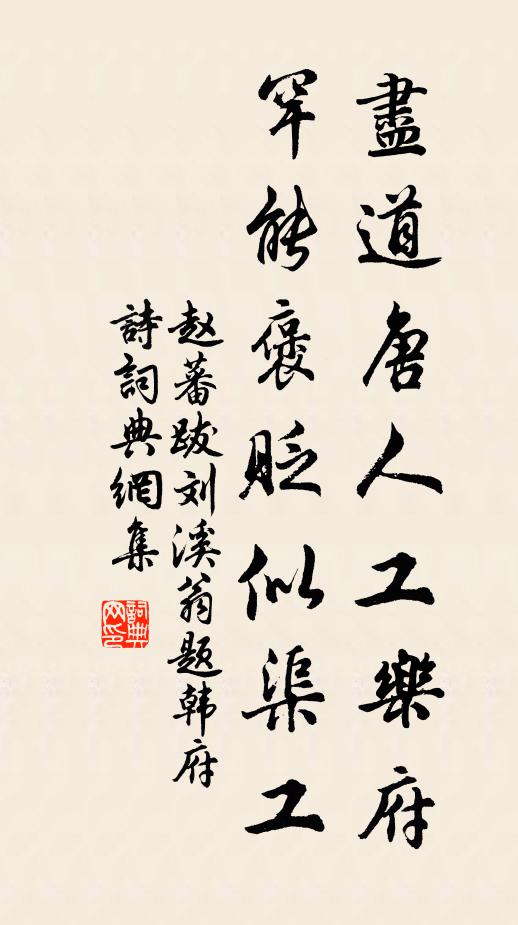 盡道唐人工樂府
罕能褒貶似渠工
赵蕃跋刘溪翁题韩府
詩詞典網集
詞典網印